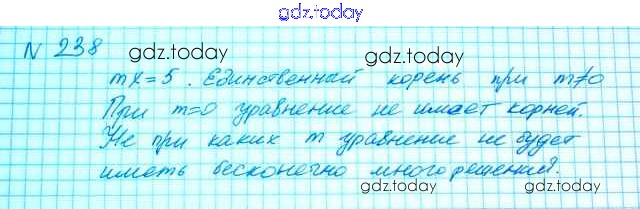 gdz.today
N 238 gdz.today gdz.today
mx=5. Единственный корень при m≠0
При m=0 уравнение не имеет корней.
Не при каких m уравнение не будет
иметь бесконечно много решений.
gdz.today gdz.today